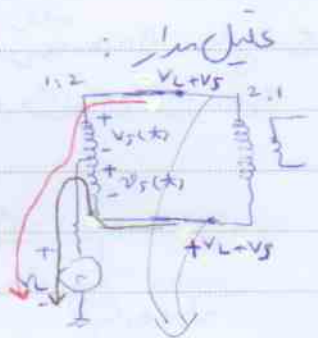 تحلیل مدار :
1:2
VL+VS
2:1
+
VS(t)
-
+
VS(t)
-
+
VL
-
+VL-VS